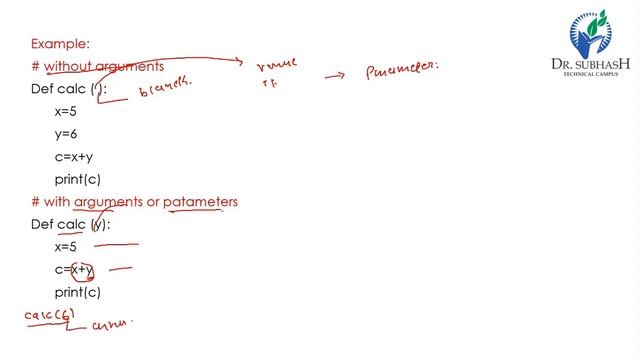 Example:
DR. SUBHASH
TECHNICAL CAMPUS
# without arguments
Def calc ( ):
→ Parameter:
x=5
y=6
c=x+y
print(c)
# with arguments or patameters
Def calc (y):
x=5
c=x+y
print(c)
calc(6)